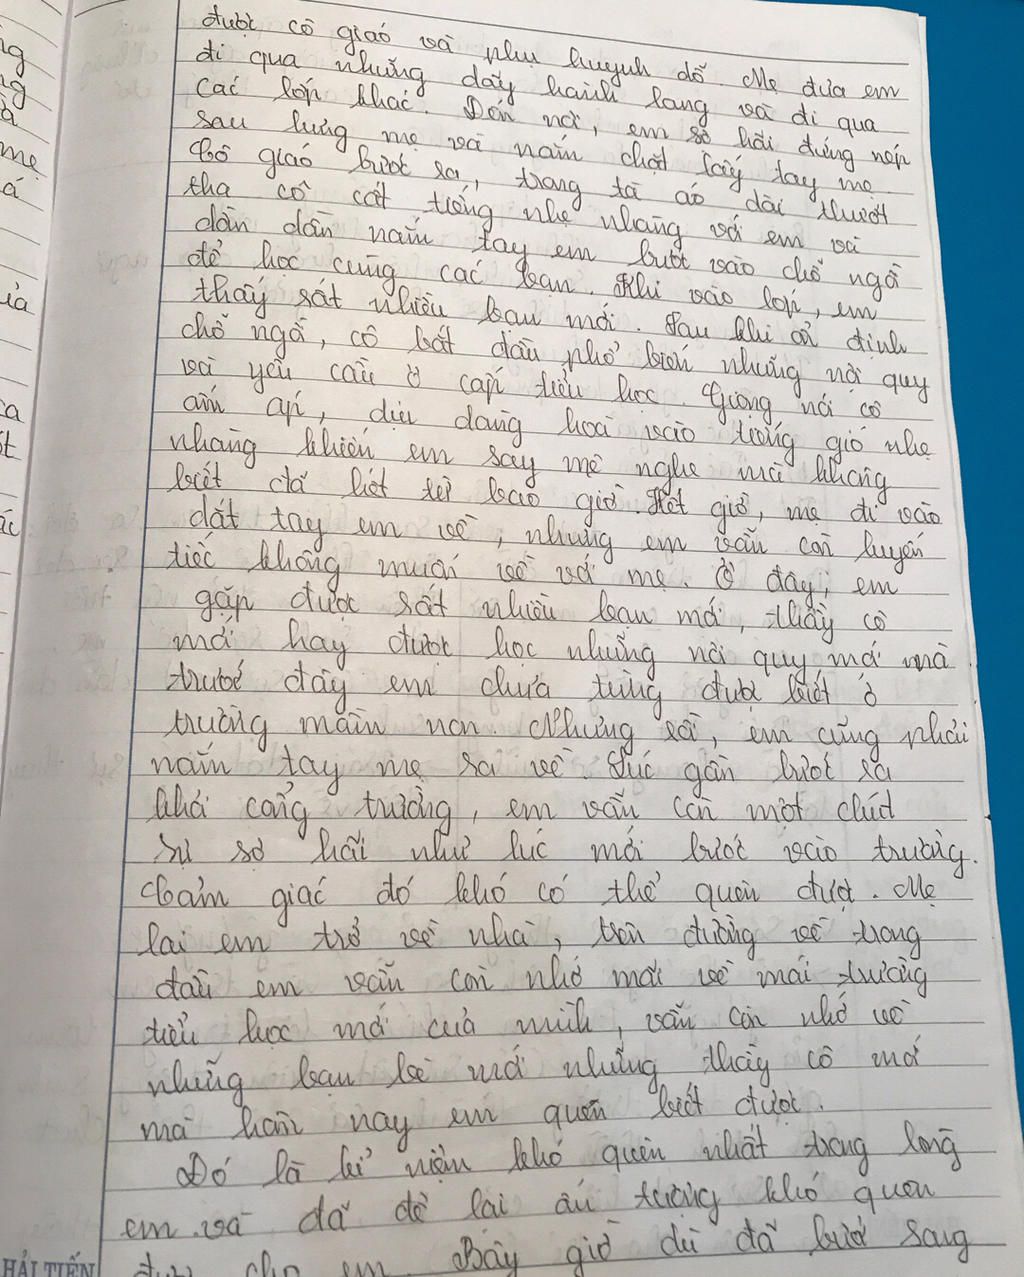 ng
ng
à
mẹ
á
ủa
ca
ất
ác
được cô giáo và phụ huynh dỗ. Mẹ đưa em
đi qua những dãy hành lang và đi qua
các lớp khác. Đến nơi, em sợ hãi đứng nép
sau lưng mẹ và nắm chặt lấy tay mẹ.
Cô giáo bước ra, trong tà áo dài thướt
tha cô cất tiếng nhẹ nhàng với em và
dần dần nắm tay em bước vào chỗ ngồi
để học cùng các bạn. Khi vào lớp, em
thấy rất nhiều bạn mới. Sau khi ổn định
chỗ ngồi, cô bắt đầu phổ biến những nội quy
và yêu cầu ở cấp tiểu học. Giọng nói cô
ấm áp, dịu dàng hoà vào tiếng gió nhẹ
nhàng khiến em say mê nghe mà không
biết đã hết từ bao giờ. Hết giờ, mẹ đi vào
dắt tay em về, nhưng em vẫn còn luyến
tiếc không muốn về với mẹ. Ở đây, em
gặp được rất nhiều bạn mới, thầy cô
mới hay được học những nội quy mới mà
trước đây em chưa từng được biết ở
trường mầm non. Nhưng rồi, em cũng phải
nắm tay mẹ ra về. Lúc gần bước ra
khỏi cổng trường, em vẫn còn một chút
sự sợ hãi như lúc mới bước vào trường.
Cảm giác đó khó có thể quên được. Mẹ
lai em trở về nhà, trên đường về trong
đầu em vẫn còn nhớ mãi về mái trường
tiểu học mới của mình, vẫn còn nhớ về
những bạn bè mới những thầy cô mới
mà hôm nay em quen biết được.
Đó là kỉ niệm khó quên nhất trong lòng
em và đã để lại ấn tượng khó quên
được cho em. Bây giờ dù đã bước sang
HẢI TIẾN